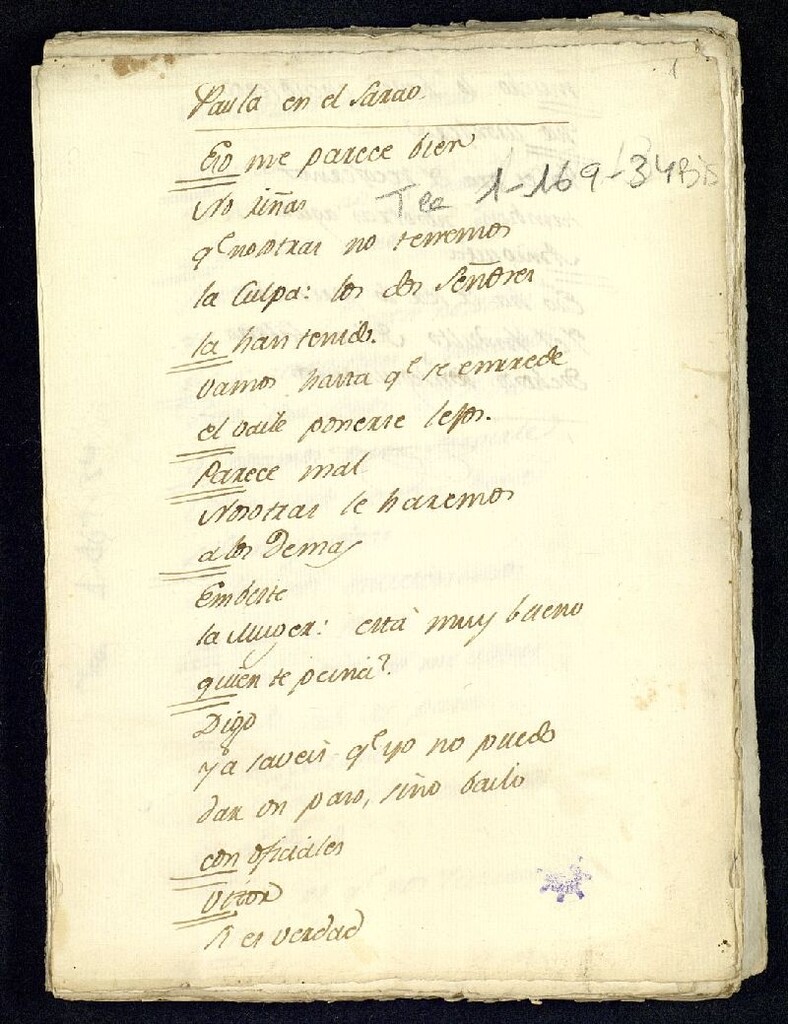 Paula en el Sarao
1
Eso me parece bien
Tea 1-169-34Bis
No riñas
q.e nosotras no tenemos
la Culpa: los dos Señores
la han tenido.
vamos hasta q.e se enrrede
el vaile ponerse lejos.
Parece mal
Nosotras le haremos
a los Demas
Embeste
la Muger: está muy bueno
quien te peina?
Digo
ya saveis q.e yo no puedo
dar un paso, sino bailo
con oficiales
Vitor
Si es verdad